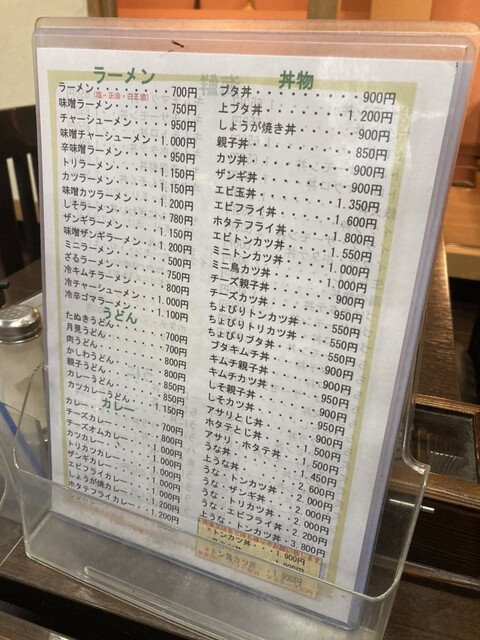 ラーメン
ラーメン・・・・・・・・700円
(塩・正油・白正油)
味噌ラーメン・・・・・・750円
チャーシューメン・・・・950円
味噌チャーシューメン・・1.000円
辛味噌ラーメン・・・・・950円
トリラーメン・・・・・・1.150円
カツラーメン・・・・・・1.150円
味噌カツラーメン・・・・1.200円
しそラーメン・・・・・・780円
ザンギラーメン・・・・・1.150円
味噌ザンギラーメン・・・1.200円
ミニラーメン・・・・・・500円
ざるラーメン・・・・・・750円
冷キムチラーメン・・・・800円
冷チャーシューメン・・・1.000円
冷辛ゴマラーメン・・・・1.100円
うどん
たぬきうどん・・・・・・700円
月見うどん・・・・・・・700円
肉うどん・・・・・・・・800円
かしわうどん・・・・・・800円
親子うどん・・・・・・・850円
カレーうどん・・・・・・850円
カツカレーうどん・・・・1.150円
カレー
カレー・・・・・・・・・700円
チーズカレー・・・・・・800円
チーズオムカレー・・・・1.000円
カツカレー・・・・・・・1.000円
トリカツカレー・・・・・1.000円
ザンギカレー・・・・・・1.000円
エビフライカレー・・・・1.200円
しょうが焼カレー・・・・1.000円
ホタテフライカレー・・・1.200円
丼物
ブタ丼・・・・・・・・・900円
上ブタ丼・・・・・・・・1.200円
しょうが焼き丼・・・・・900円
親子丼・・・・・・・・・850円
カツ丼・・・・・・・・・900円
ザンギ丼・・・・・・・・900円
エビ玉丼・・・・・・・・1.350円
エビフライ丼・・・・・・1.600円
ホタテフライ丼・・・・・1.800円
エビトンカツ丼・・・・・1.550円
ミニトンカツ丼・・・・・1.000円
ミニ鳥カツ丼・・・・・・1.000円
チーズ親子丼・・・・・・900円
チーズカツ丼・・・・・・950円
ちょびりトンカツ丼・・・550円
ちょびりトリカツ丼・・・550円
ちょびりブタ丼・・・・・550円
ブタキムチ丼・・・・・・900円
キムチ親子丼・・・・・・900円
キムチカツ丼・・・・・・950円
しそ親子丼・・・・・・・900円
しそカツ丼・・・・・・・950円
アサリとじ丼・・・・・・900円
ホタテとじ丼・・・・・・1.500円
アサリ・ホタテ丼・・・・1.500円
うな丼・・・・・・・・・1.450円
上うな丼・・・・・・・・2.600円
うな・トンカツ丼・・・・2.000円
うな・ザンギ丼・・・・・2.000円
うな・トリ丼・・・・・・2.000円
うな・エビフライ丼・・・2.200円
うな・エビトンカツ丼・・3.800円
トンカツ丼・・・1.900円